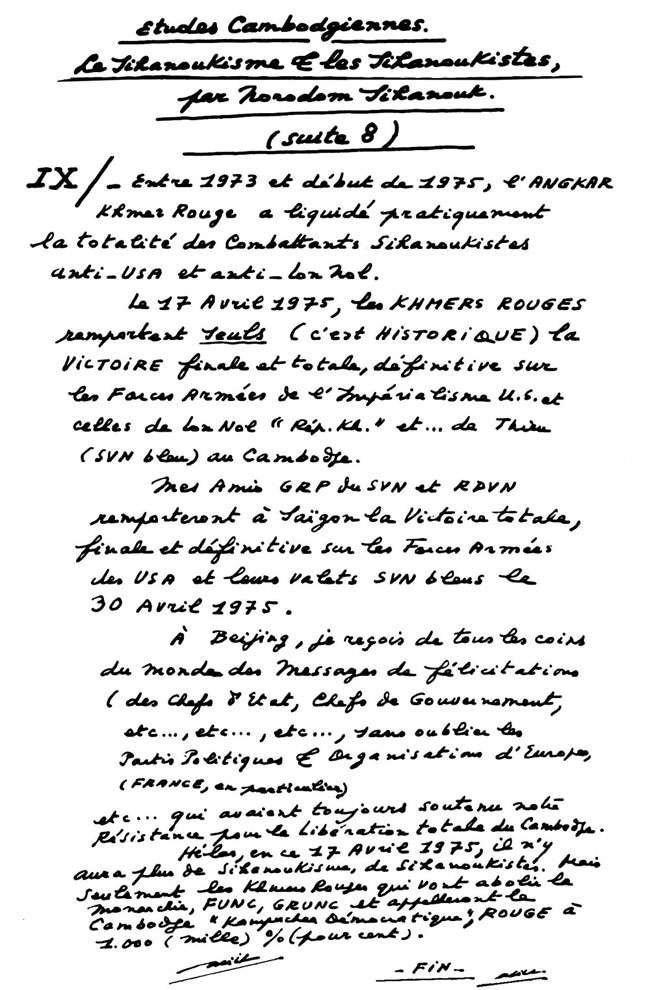 Etudes Cambodgiennes.
Le Sihanoukisme & les Sihanoukistes,
par Norodom Sihanouk.
(suite 8)
IX/- Entre 1973 et début de 1975, l'ANGKAR
Khmer Rouge a liquidé pratiquement
la totalité des Combattants Sihanoukistes
anti-USA et anti-Lon Nol.
Le 17 Avril 1975, les KHMERS ROUGES
remportent seuls (c'est HISTORIQUE) la
VICTOIRE finale et totale, définitive sur
les Forces Armées de l'Impérialisme U.S. et
celles de Lon Nol "Rép. Kh." et... de Thieu
(SVN bleu) au Cambodge.
Mes Amis GRP du SVN et RDVN
remporteront à Saïgon la Victoire totale,
finale et définitive sur les Forces Armées
des USA et leurs valets SVN bleus le
30 Avril 1975.
À Beijing, je reçois de tous les coins
du monde des Messages de félicitations
(des Chefs d'Etat, Chefs de Gouvernement,
etc..., etc..., etc..., sans oublier les
Partis Politiques & Organisations d'Europe,
(FRANCE, en particulier)
etc... qui avaient toujours soutenu notre
Résistance pour la Libération totale du Cambodge.
Hélas, en ce 17 Avril 1975, il n'y
aura plus de Sihanoukisme, de Sihanoukistes. Mais
seulement les Khmers Rouges qui vont abolir la
monarchie, FUNC, GRUNC et appelleront le
Cambodge "Kampuchea Démocratique", ROUGE à
1.000 (mille) % (pour cent).
- FIN -